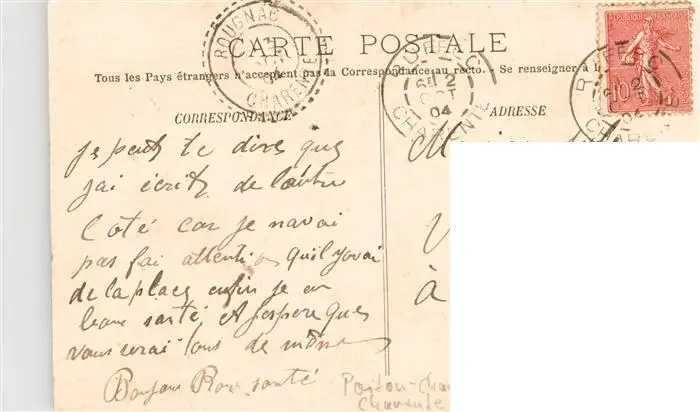 CARTE POSTALE
Tous les Pays étrangers n'acceptent pas la Correspondance au recto. - Se renseigner à l
CORRESPONDANCE
ADRESSE
ROUGNAC
CHARENTE
RUFFEC
2
OCT
04
CHARENTE
RUFFEC
2
04
RÉPUBLIQUE FRANÇAISE
10
je peut te dire que
jai écrit de lautre
Coté car je navai
pas fai attention quil yavai
de la place enfin je en
bonne santé et jespere que
vous serai tous de même
santé
M
V
à
Poitou-Char
Charente